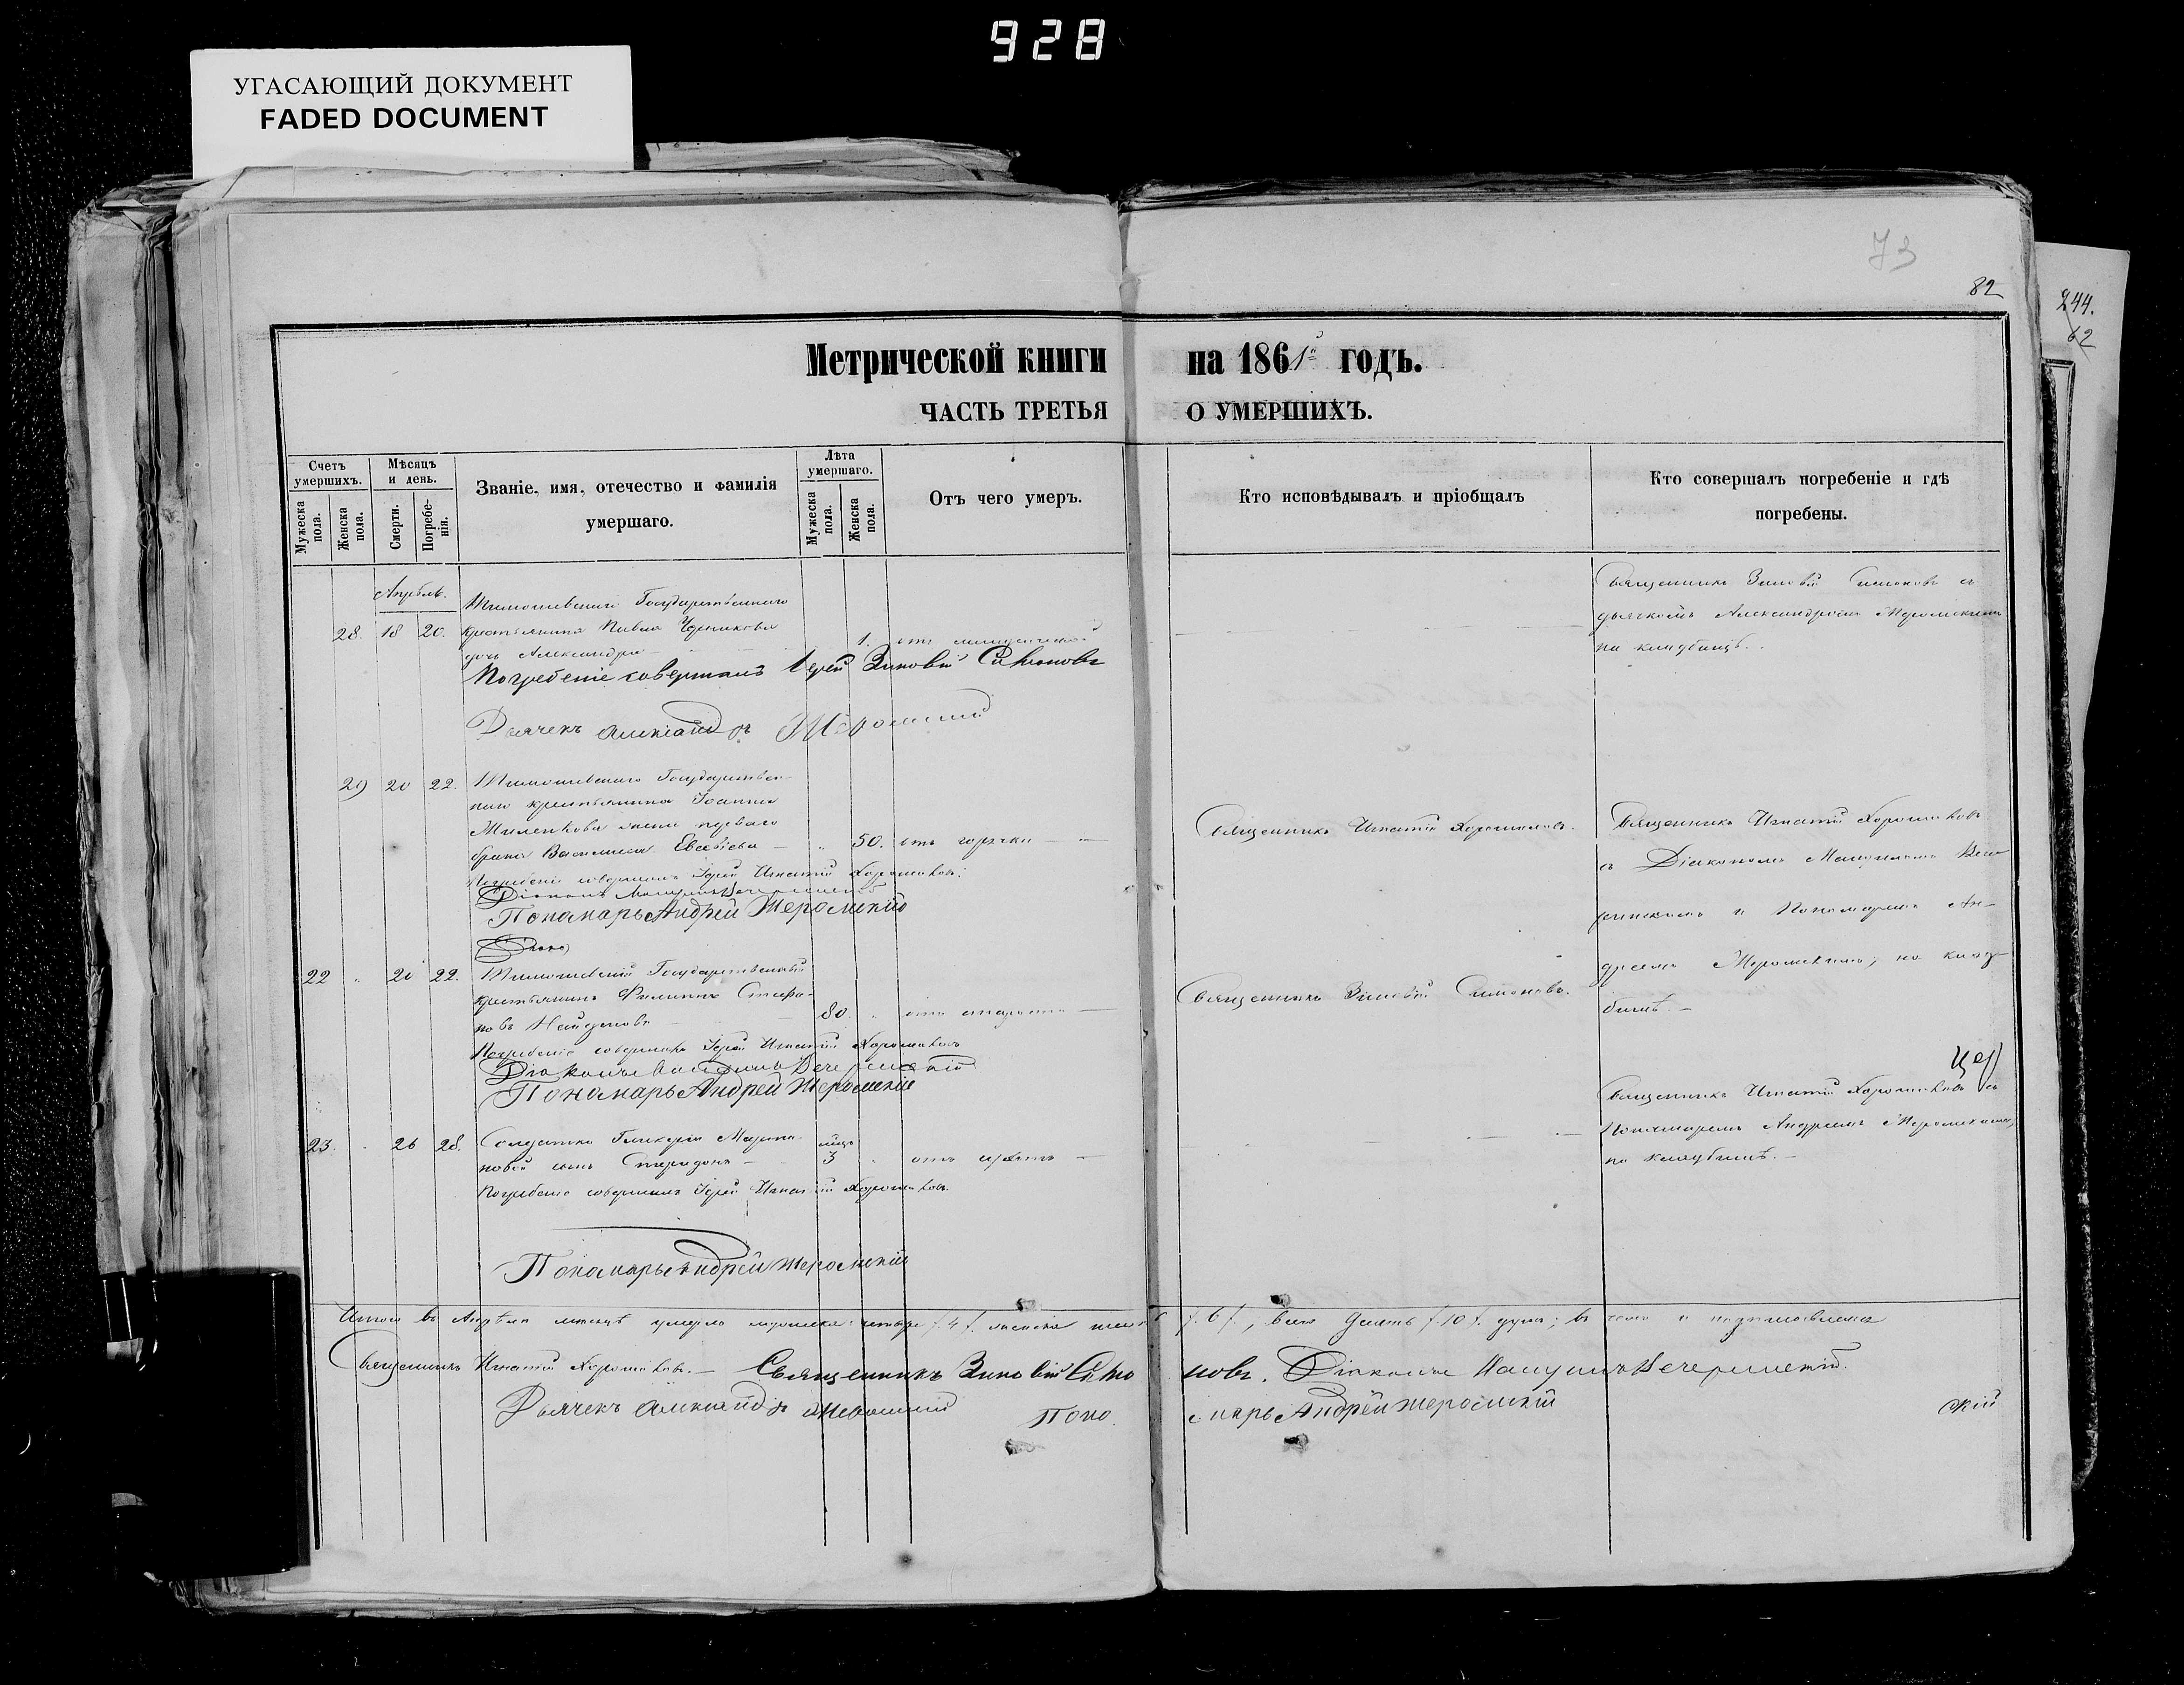 928
УГАСАЮЩИЙ ДОКУМЕНТ
FADED DOCUMENT
73
82
244.
62
Метрической книги на 1861го годъ.
ЧАСТЬ ТРЕТЬЯ О УМЕРШИХЪ.
Счетъ умершихъ.
Мужеска пола.
Женска пола.
Мѣсяцъ и день.
Смерти.
Погребенія.
Званіе, имя, отечество и фамилія умершаго.
Лѣта умершаго.
Мужеска пола.
Женска пола.
Отъ чего умеръ.
Кто исповѣдывалъ и пріобщалъ
Кто совершалъ погребеніе и гдѣ погребены.
Апрѣль.
28. 18 20.
Государственнаго
крестьянина Павла
дочь Александра
1. отъ
Священникъ Зиновій Симоновъ съ
дьячкомъ Александромъ Жеромскимъ
на кладбищѣ.
Погребеніе совершалъ Іерей Зиновій Симоновъ
Дьячекъ Александръ Жеромскій
29 20 22.
Государствен-
наго крестьянина Іоанна
Миленкова жена перваго
брака Василиса Евсевіева
50. отъ горячки
Священникъ Игнатій Хорошковъ.
Священникъ Игнатій Хорошковъ
съ Діакономъ
и Пономаремъ Ан-
дреемъ Жеромскимъ, на клад-
бищѣ.
Погребеніе совершалъ Іерей Игнатій Хорошковъ.
Діаконъ
Пономарь Андрей Жеромскій
22 " 20 22.
Государственный
крестьянинъ Филиппъ Стефа-
новъ Найденовъ
80. " отъ старости
Священникъ Зиновій Симоновъ.
Погребеніе совершалъ Іерей Игнатій Хорошковъ
Діаконъ
Пономарь Андрей Жеромскій
23. " 26 28.
Солдатки Гликеріи Марты-
новой сынъ Спиридонъ
мѣс. 3 отъ
Священникъ Игнатій Хорошковъ съ
Пономаремъ Андреемъ Жеромскимъ,
на кладбищѣ.
Погребеніе совершалъ Іерей Игнатій Хорошковъ.
Пономарь Андрей Жеромскій
Итого въ Апрѣлѣ мѣсяцѣ умерло мужеска четыре /.4/. женска шесть /.6/., всего десять /.10/. душъ; въ чемъ и подписываемся
Священникъ Игнатій Хорошковъ. Священникъ Зиновій Симоновъ. Діаконъ
Дьячекъ Александръ Жеромскій Пономарь Андрей Жеромскій
скій